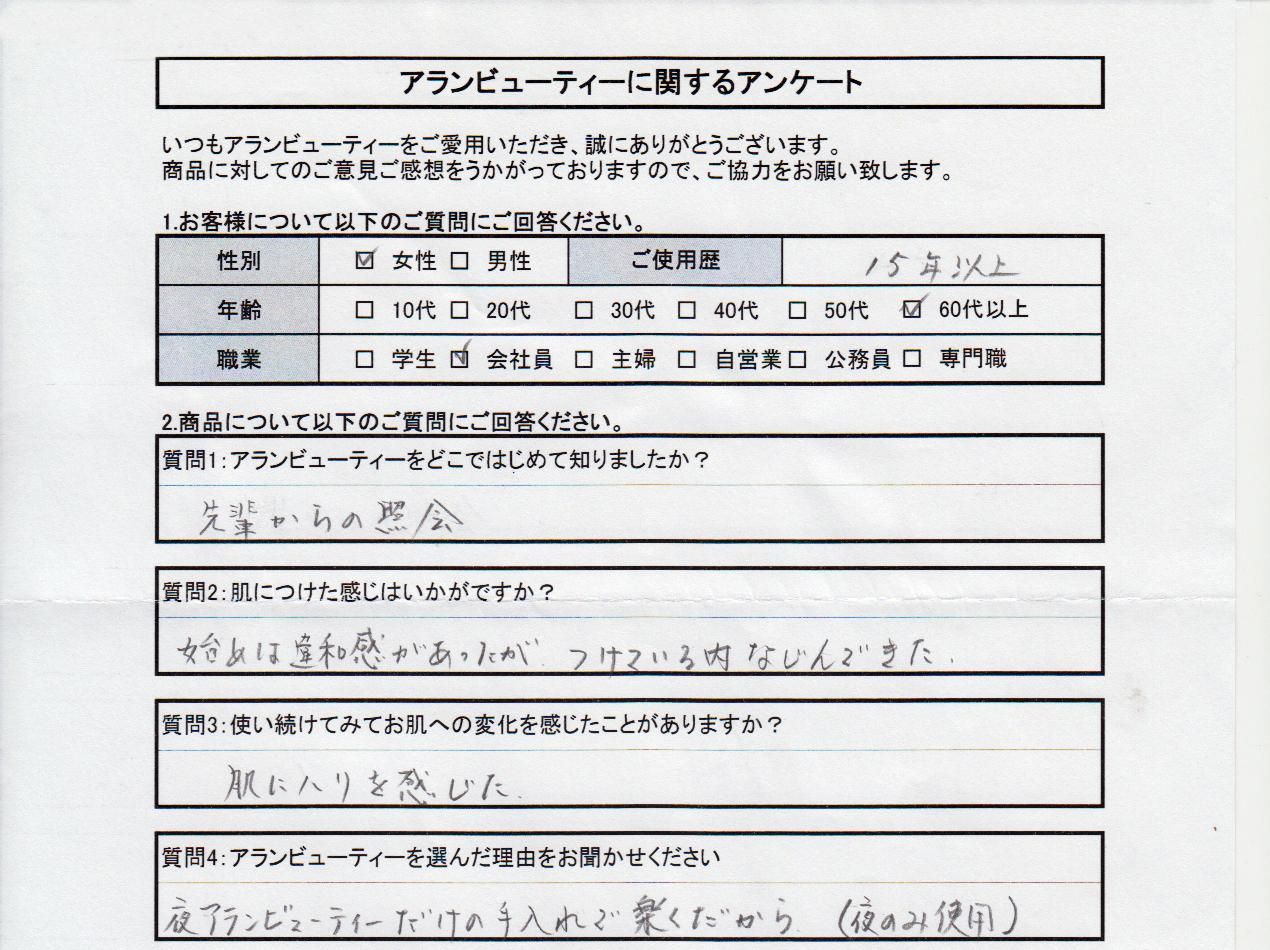 アランビューティーに関するアンケート
いつもアランビューティーをご愛用いただき、誠にありがとうございます。
商品に対してのご意見ご感想をうかがっておりますので、ご協力をお願い致します。
1.お客様について以下のご質問にご回答ください。
性別 ☑ 女性 □ 男性 ご使用歴 15年以上
年齢 □ 10代 □ 20代 □ 30代 □ 40代 □ 50代 ☑ 60代以上
職業 □ 学生 ☑ 会社員 □ 主婦 □ 自営業 □ 公務員 □ 専門職
2.商品について以下のご質問にご回答ください。
質問1:アランビューティーをどこではじめて知りましたか?
先輩からの照会
質問2:肌につけた感じはいかがですか?
始めは違和感があったが、つけている内なじんできた.
質問3:使い続けてみてお肌への変化を感じたことがありますか?
肌にハリを感じた.
質問4:アランビューティーを選んだ理由をお聞かせください
夜アランビューティーだけの手入れで楽くだから. (夜のみ使用)